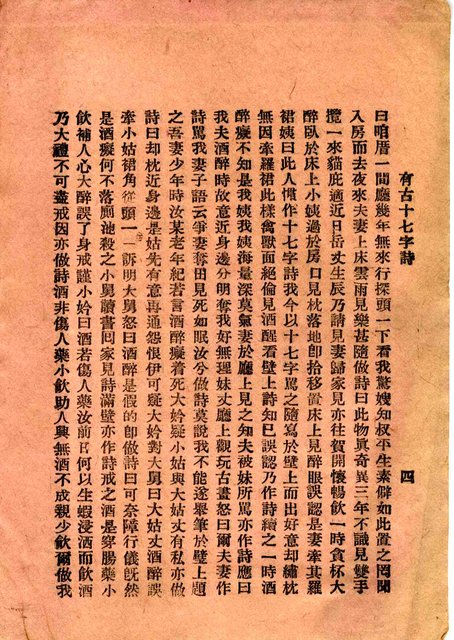 有古十七字詩
四
曰咱厝一間廳幾年無來行探頭一下看我驚嫂知叔平生素僻如此置之罔聞
入房而去夜來夫妻上床雲雨見樂甚隨做詩曰此物真奇異三年不識見雙手
攬一來貓庇適近日岳丈生辰乃請見妻歸家見亦往賀開懷暢飲一時貪杯大
醉臥於床上小姨過於房口見枕落地卽拾移置床上見醉眼誤認是妻牽其羅
裙姨曰此人慣作十七字詩我今以十七字罵之隨寫於壁上而出好意却繡枕
無因牽羅裙此樣禽獸面絕倫見酒醒看壁上詩知已誤認乃作詩續之一時酒
醉癡不知是我姨我姨海量深莫氣妻於廳上見之知夫被妹所罵亦作詩應曰
我夫酒醉時故意近身邊分明奪我好無理妹丈廳上觀玩古畫怒曰爾夫妻作
詩罵我妻子語云爭妻奪田見死如眠汝兮做詩莫說我不能遂舉筆於壁上題
之吾妻少年時汝某老年紀若言酒醉癡着死大妗疑小姑與大姑丈有私亦做
詩曰却枕近身邊是姑先有意再通怨恨伊可疑大妗對大舅曰大姑丈酒醉誤
牽小姑裙角從頭一一訴明大舅怒曰酒醉是假的卽做詩曰可奈障行儀旣然
是酒癡何不落廁池殺之小舅讀書囘家見詩滿壁亦作詩戒之酒是穿腸藥小
飲補人心大醉誤了身戒謹小妗曰酒若傷人藥汝前官何以生蝦浸酒而飲酒
乃大禮不可盡戒因亦做詩酒非傷人藥小飲助人興無酒不成親少飲爾做我